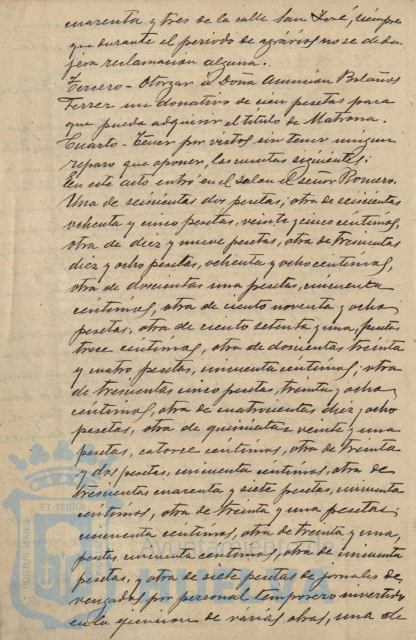 cuarenta y tres de la calle San José, siempre
que durante el periodo de agravios no se dedu
jera reclamacion alguna.
Tercero - Otorgar á Doña Asuncion Bolaños
Ferrer un donativo de cien pesetas para
que pueda adquirir el titulo de Matrona.
Cuarto - Tener por vistos sin tener ningun
reparo que aponer, las cuentas siguientes:
En este acto entró en el salon el señor Romero.
Una de seiscientas dos pesetas; otra de seiscientas
ochenta y cinco pesetas, veinte y cinco centimos,
otra de diez y nueve pesetas, otra de trescientas
diez y ocho pesetas, ochenta y ocho centimos,
otra de doscientas una pesetas, cincuenta
centimos, otra de ciento noventa y ocho
pesetas, otra de ciento setenta y una, pesetas
trece centimos, otra de doscientas treinta
y cuatro pesetas, cincuenta centimos; otra
de trescientas cinco pesetas, treinta y ocho
centimos, otra de cuatrocientas diez y ocho
pesetas, otra de quinientas veinte y una
pesetas, catorce centimos, otra de treinta
y dos pesetas, cincuenta centimos, otra de
trescientas cuarenta y siete pesetas, cincuenta
centimos, otra de treinta y una pesetas,
cincuenta centimos, otra de treinta y una,
pesetas, cincuenta centimos, otra de cincuenta
pesetas, y otra de siete pesetas de jornales de
vengados por personal temporero invertido
en la ejecucion de varias obras, una de
ET TERRA
PORTUS MARIS